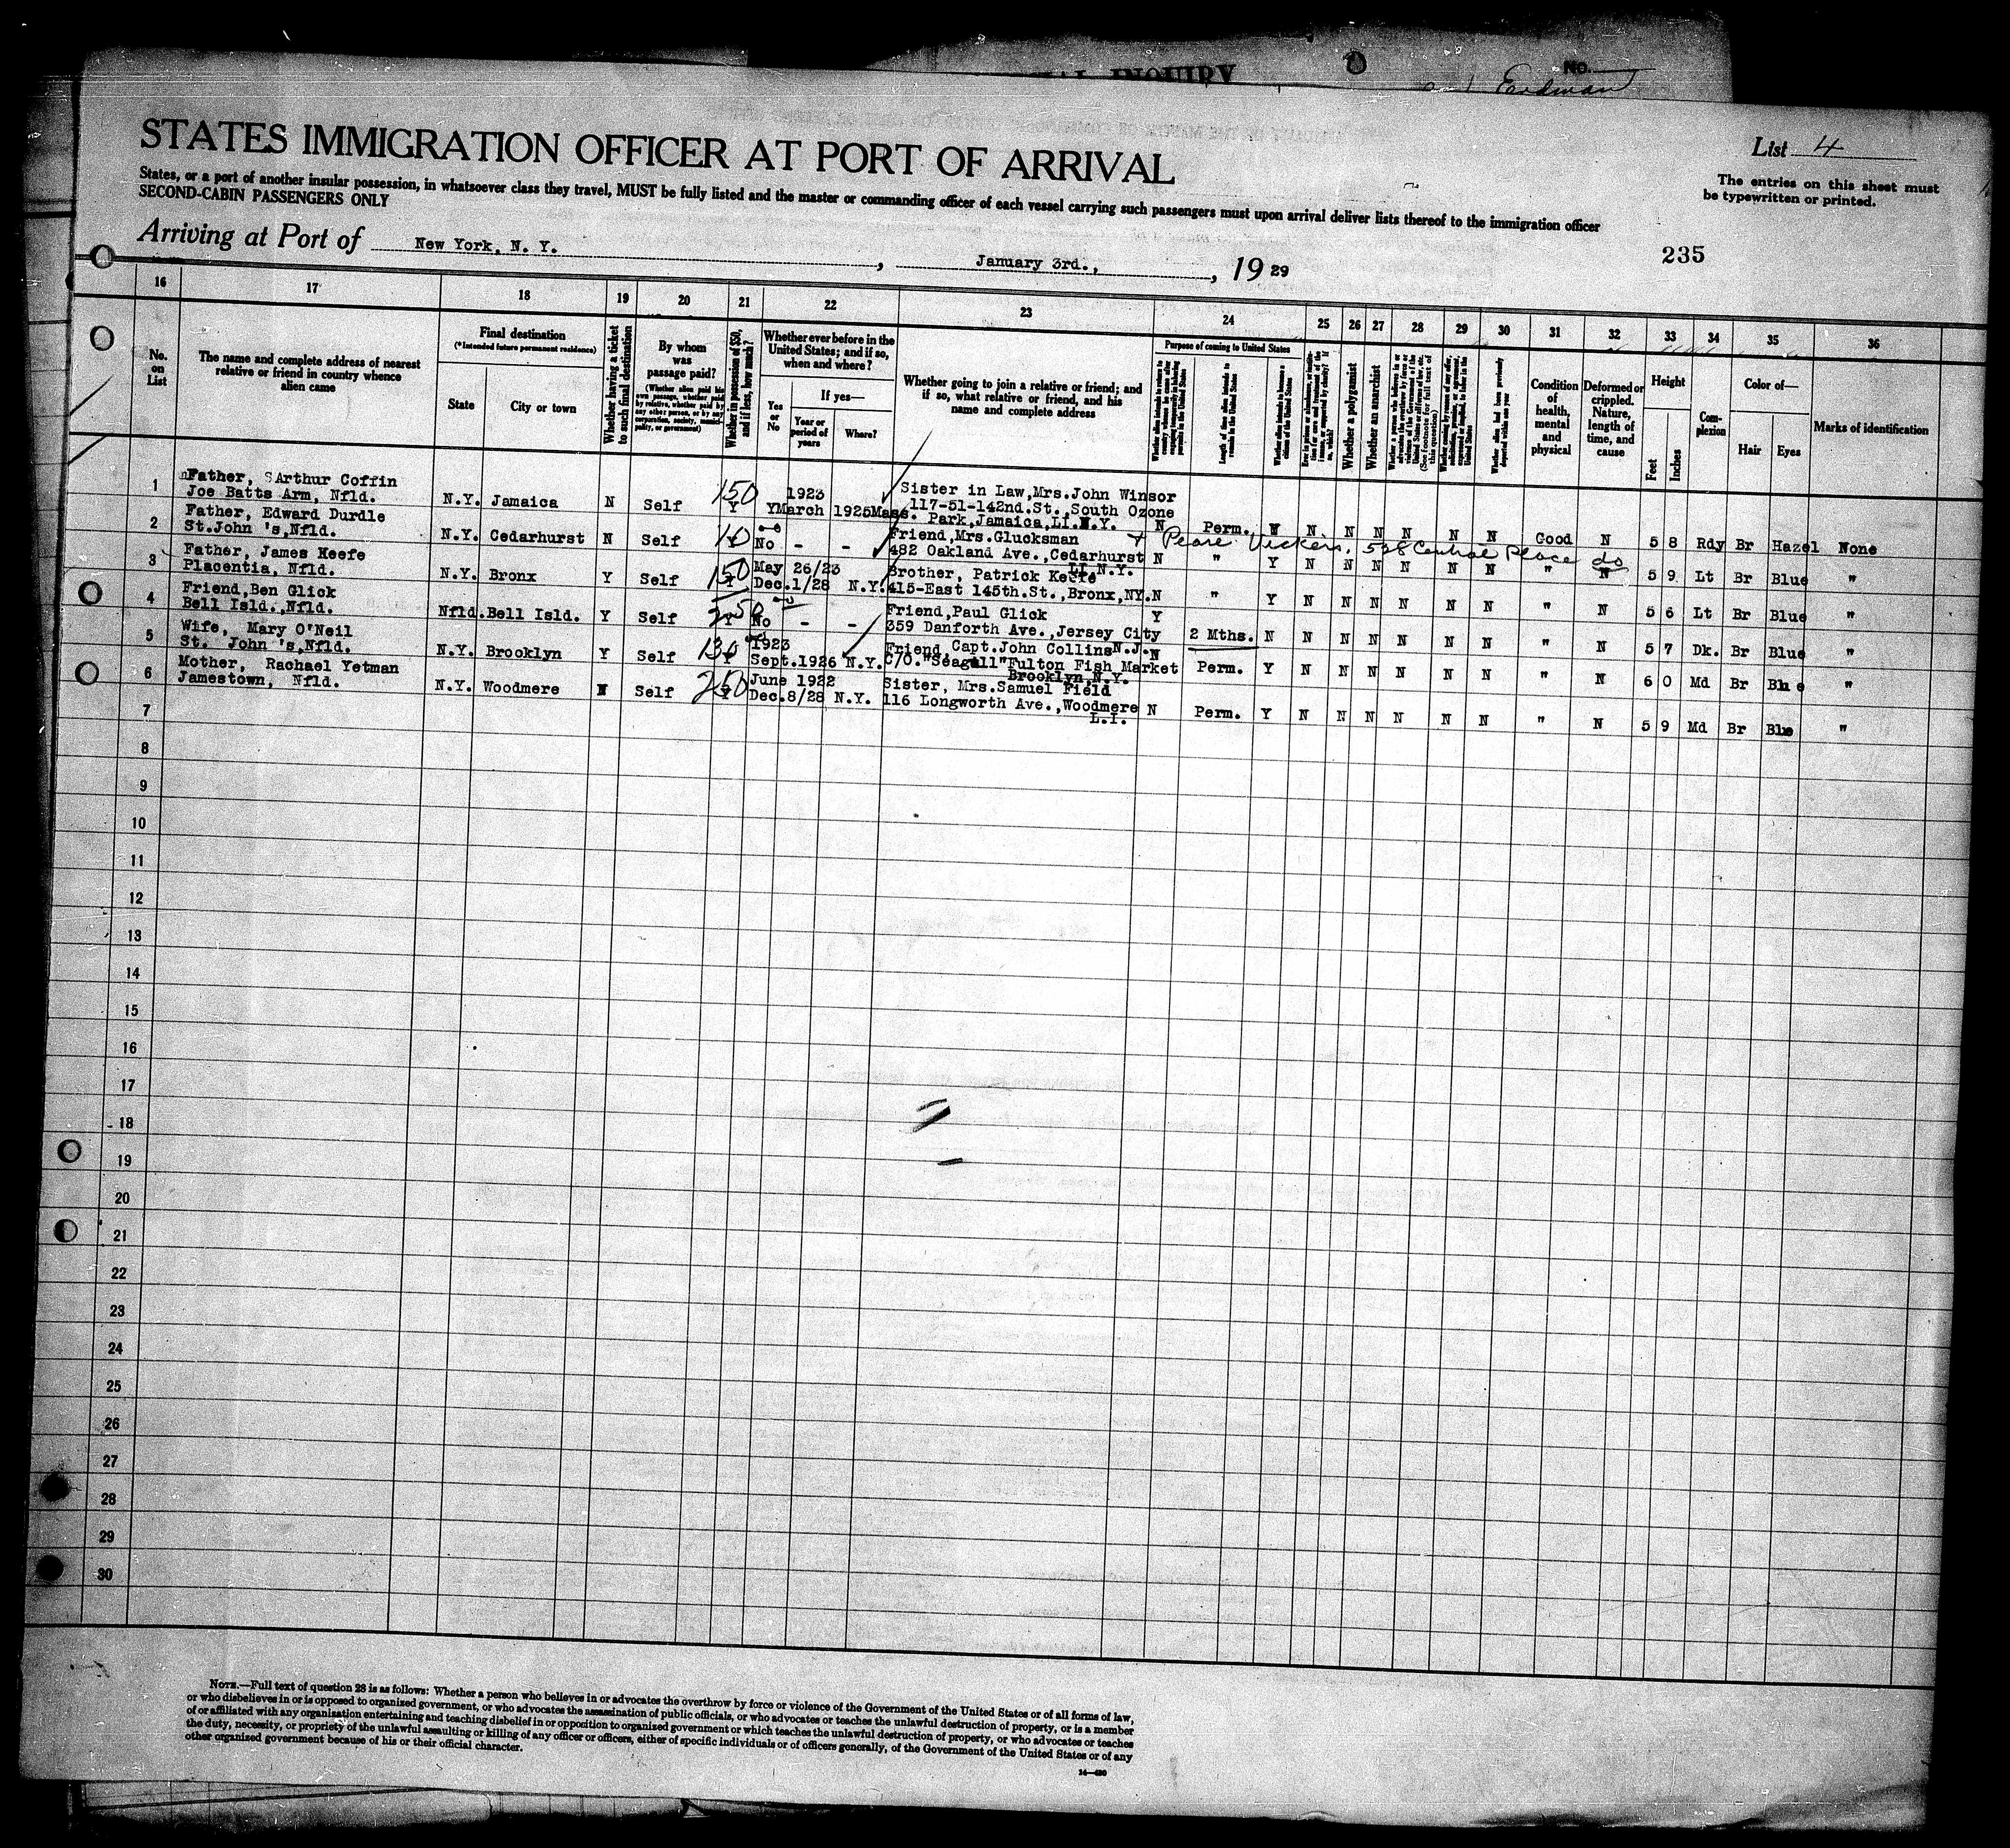 INQUIRY
No.
Erdman
STATES IMMIGRATION OFFICER AT PORT OF ARRIVAL
List 4
States, or a port of another insular possession, in whatsoever class they travel, MUST be fully listed and the master or commanding officer of each vessel carrying such passengers must upon arrival deliver lists thereof to the immigration officer
SECOND-CABIN PASSENGERS ONLY
The entries on this sheet must
be typewritten or printed.
Arriving at Port of New York, N. Y. , January 3rd., , 1929
235
16 17 18 19 20 21 22 23 24 25 26 27 28 29 30 31 32 33 34 35 36
No.
on
List
The name and complete address of nearest
relative or friend in country whence
alien came
Final destination
(*Intended future permanent residence)
State
City or town
Whether having a ticket
to such final destination
By whom
was
passage paid?
(Whether alien paid his
own passage, whether paid
by relative, whether paid by
any other person, or by any
corporation, society, munici-
pality, or government)
Whether in possession of $50,
and if less, how much?
Whether ever before in the
United States; and if so,
when and where?
Yes
or
No
If yes—
Year or
period of
years
Where?
Whether going to join a relative or friend; and
if so, what relative or friend, and his
name and complete address
Purpose of coming to United States
Length of time alien intends to
remain in the United States
Whether alien intends to become a
citizen of the United States
Whether a polygamist
Whether an anarchist
(See footnote for full text of
this question)
Whether alien had been previously
deported within one year
Condition
of
health,
mental
and
physical
Deformed or
crippled.
Nature,
length of
time, and
cause
Height
Feet
Inches
Com-
plexion
Color of—
Hair
Eyes
Marks of identification
1 Father, Arthur Coffin
Joe Batts Arm, Nfld. N.Y. Jamaica N Self 150 Y Y 1923
March 1925 Mass. Sister in Law,Mrs.John Winsor
117-51-142nd.St.,South Ozone
Park,Jamaica,LI.N.Y. N Perm. N N N N N N Good N 5 8 Rdy Br Hazel None
2 Father, Edward Durdle
St.John 's,Nfld. N.Y. Cedarhurst N Self 10 No - - Friend,Mrs.Glucksman
482 Oakland Ave.,Cedarhurst
LI.N.Y. N " Y N N N N N N " N 5 9 Lt Br Blue "
Vickers, 528 Central Place do
3 Father, James Keefe
Placentia, Nfld. N.Y. Bronx Y Self 150 May 26/23
Dec.1/28 N.Y. Brother, Patrick Keefe
415-East 145th.St.,Bronx,NY. N " Y N N N N N N " N 5 6 Lt Br Blue "
4 Friend,Ben Glick
Bell Isld.,Nfld. Nfld. Bell Isld. Y Self 250 No - - Friend,Paul Glick
359 Danforth Ave.,Jersey City
N.J. Y 2 Mths. N N N N N N N " N 5 7 Dk. Br Blue "
5 Wife, Mary O'Neil
St. John 's,Nfld. N.Y. Brooklyn Y Self 130 1923
Sept.1926 N.Y. Friend,Capt.John Collins
C/O."Seagull"Fulton Fish Market
Brooklyn,N.Y. N Perm. Y N N N N N N " N 6 0 Md Br Blue "
6 Mother, Rachael Yetman
Jamestown, Nfld. N.Y. Woodmere N Self 250 June 1922
Dec.8/28 N.Y. Sister, Mrs.Samuel Field
116 Longworth Ave.,Woodmere
L.I. N Perm. Y N N N N N N " N 5 9 Md Br Blue "
7
8
9
10
11
12
13
14
15
16
17
18
19
20
21
22
23
24
25
26
27
28
29
30
NOTE.—Full text of question 28 is as follows: Whether a person who believes in or advocates the overthrow by force or violence of the Government of the United States or of all forms of law,
or who disbelieves in or is opposed to organized government, or who advocates the assassination of public officials, or who advocates or teaches the unlawful destruction of property, or is a member
of or affiliated with any organization entertaining and teaching disbelief in or opposition to organized government or which teaches the unlawful destruction of property, or who advocates or teaches
the duty, necessity, or propriety of the unlawful assaulting or killing of any officer or officers, either of specific individuals or of officers generally, of the Government of the United States or of any
other organized government because of his or their official character.